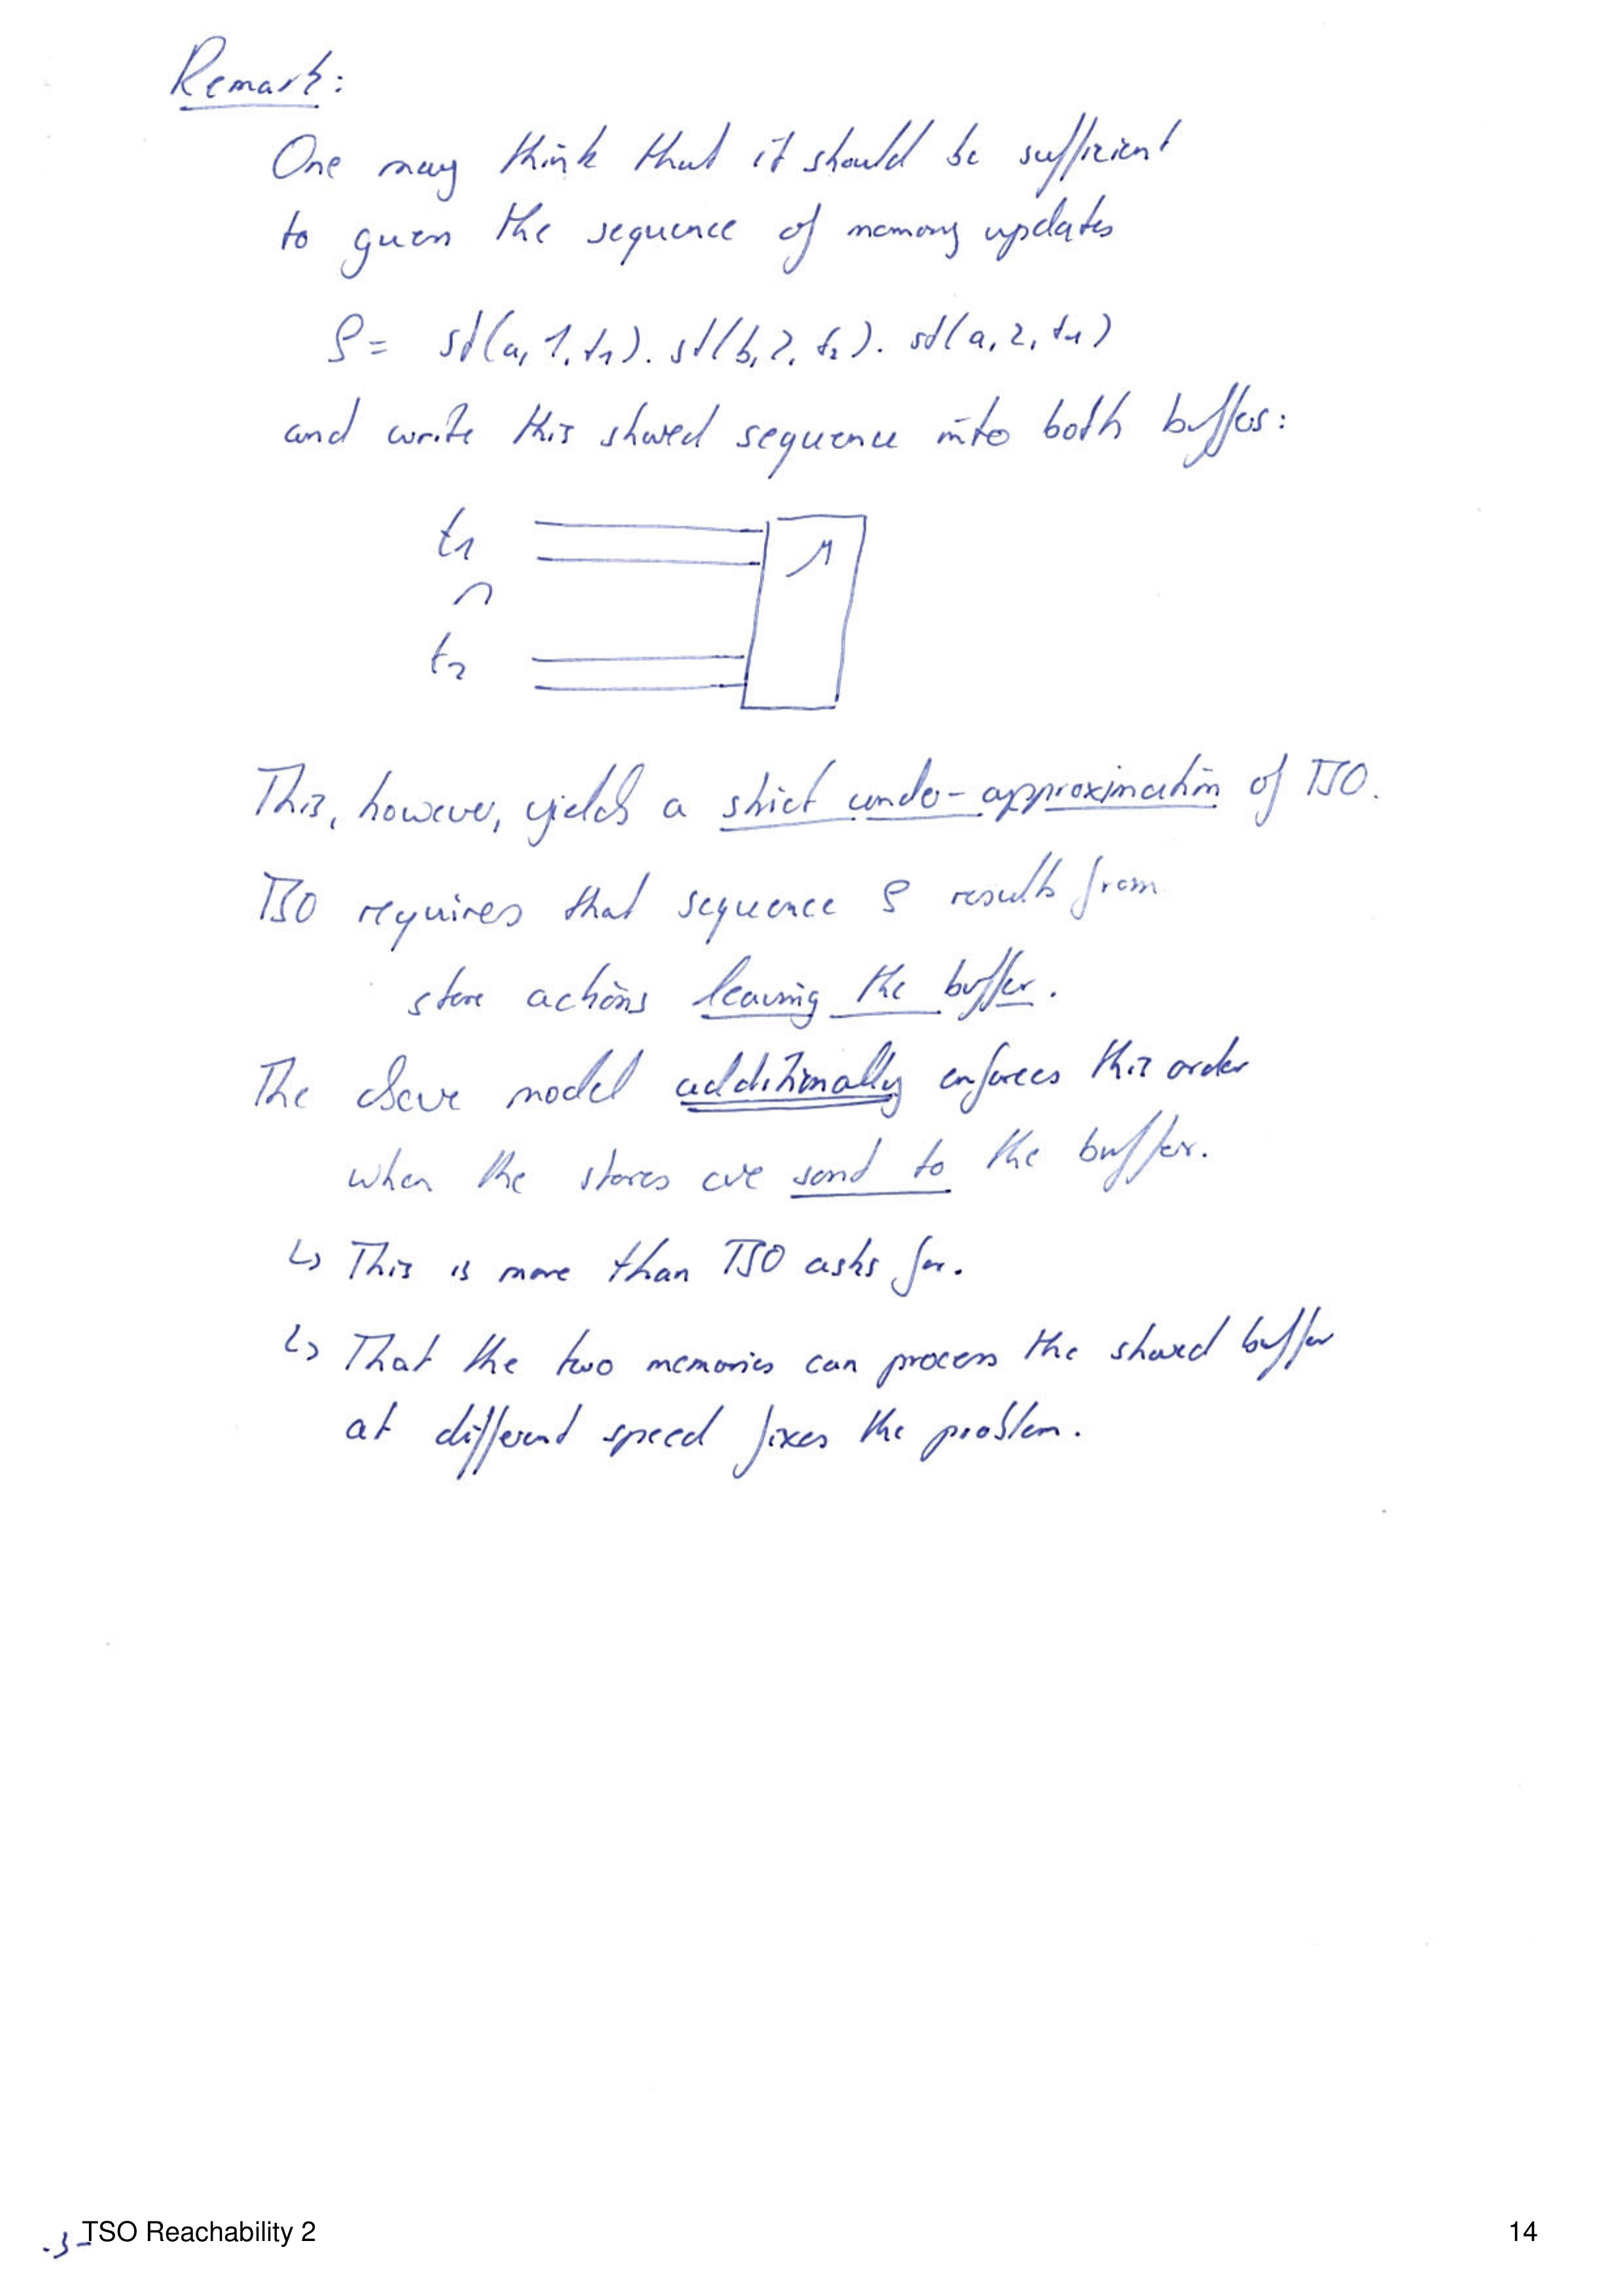 Remark:
One may think that it should be sufficient
to guess the sequence of memory updates
ρ = st(a, 1, t1). st(b, 2, t2). st(a, 2, t1)
and write this shared sequence into both buffers:
t1
t2
This, however, yields a strict under-approximation of TSO.
TSO requires that sequence ρ results from
store actions leaving the buffer.
The above model additionally enforces this order
when the stores are send to the buffer.
↳ This is more than TSO asks for.
↳ That the two memories can process the shared buffer
at different speed fixes the problem.
-3-
TSO Reachability 2
14